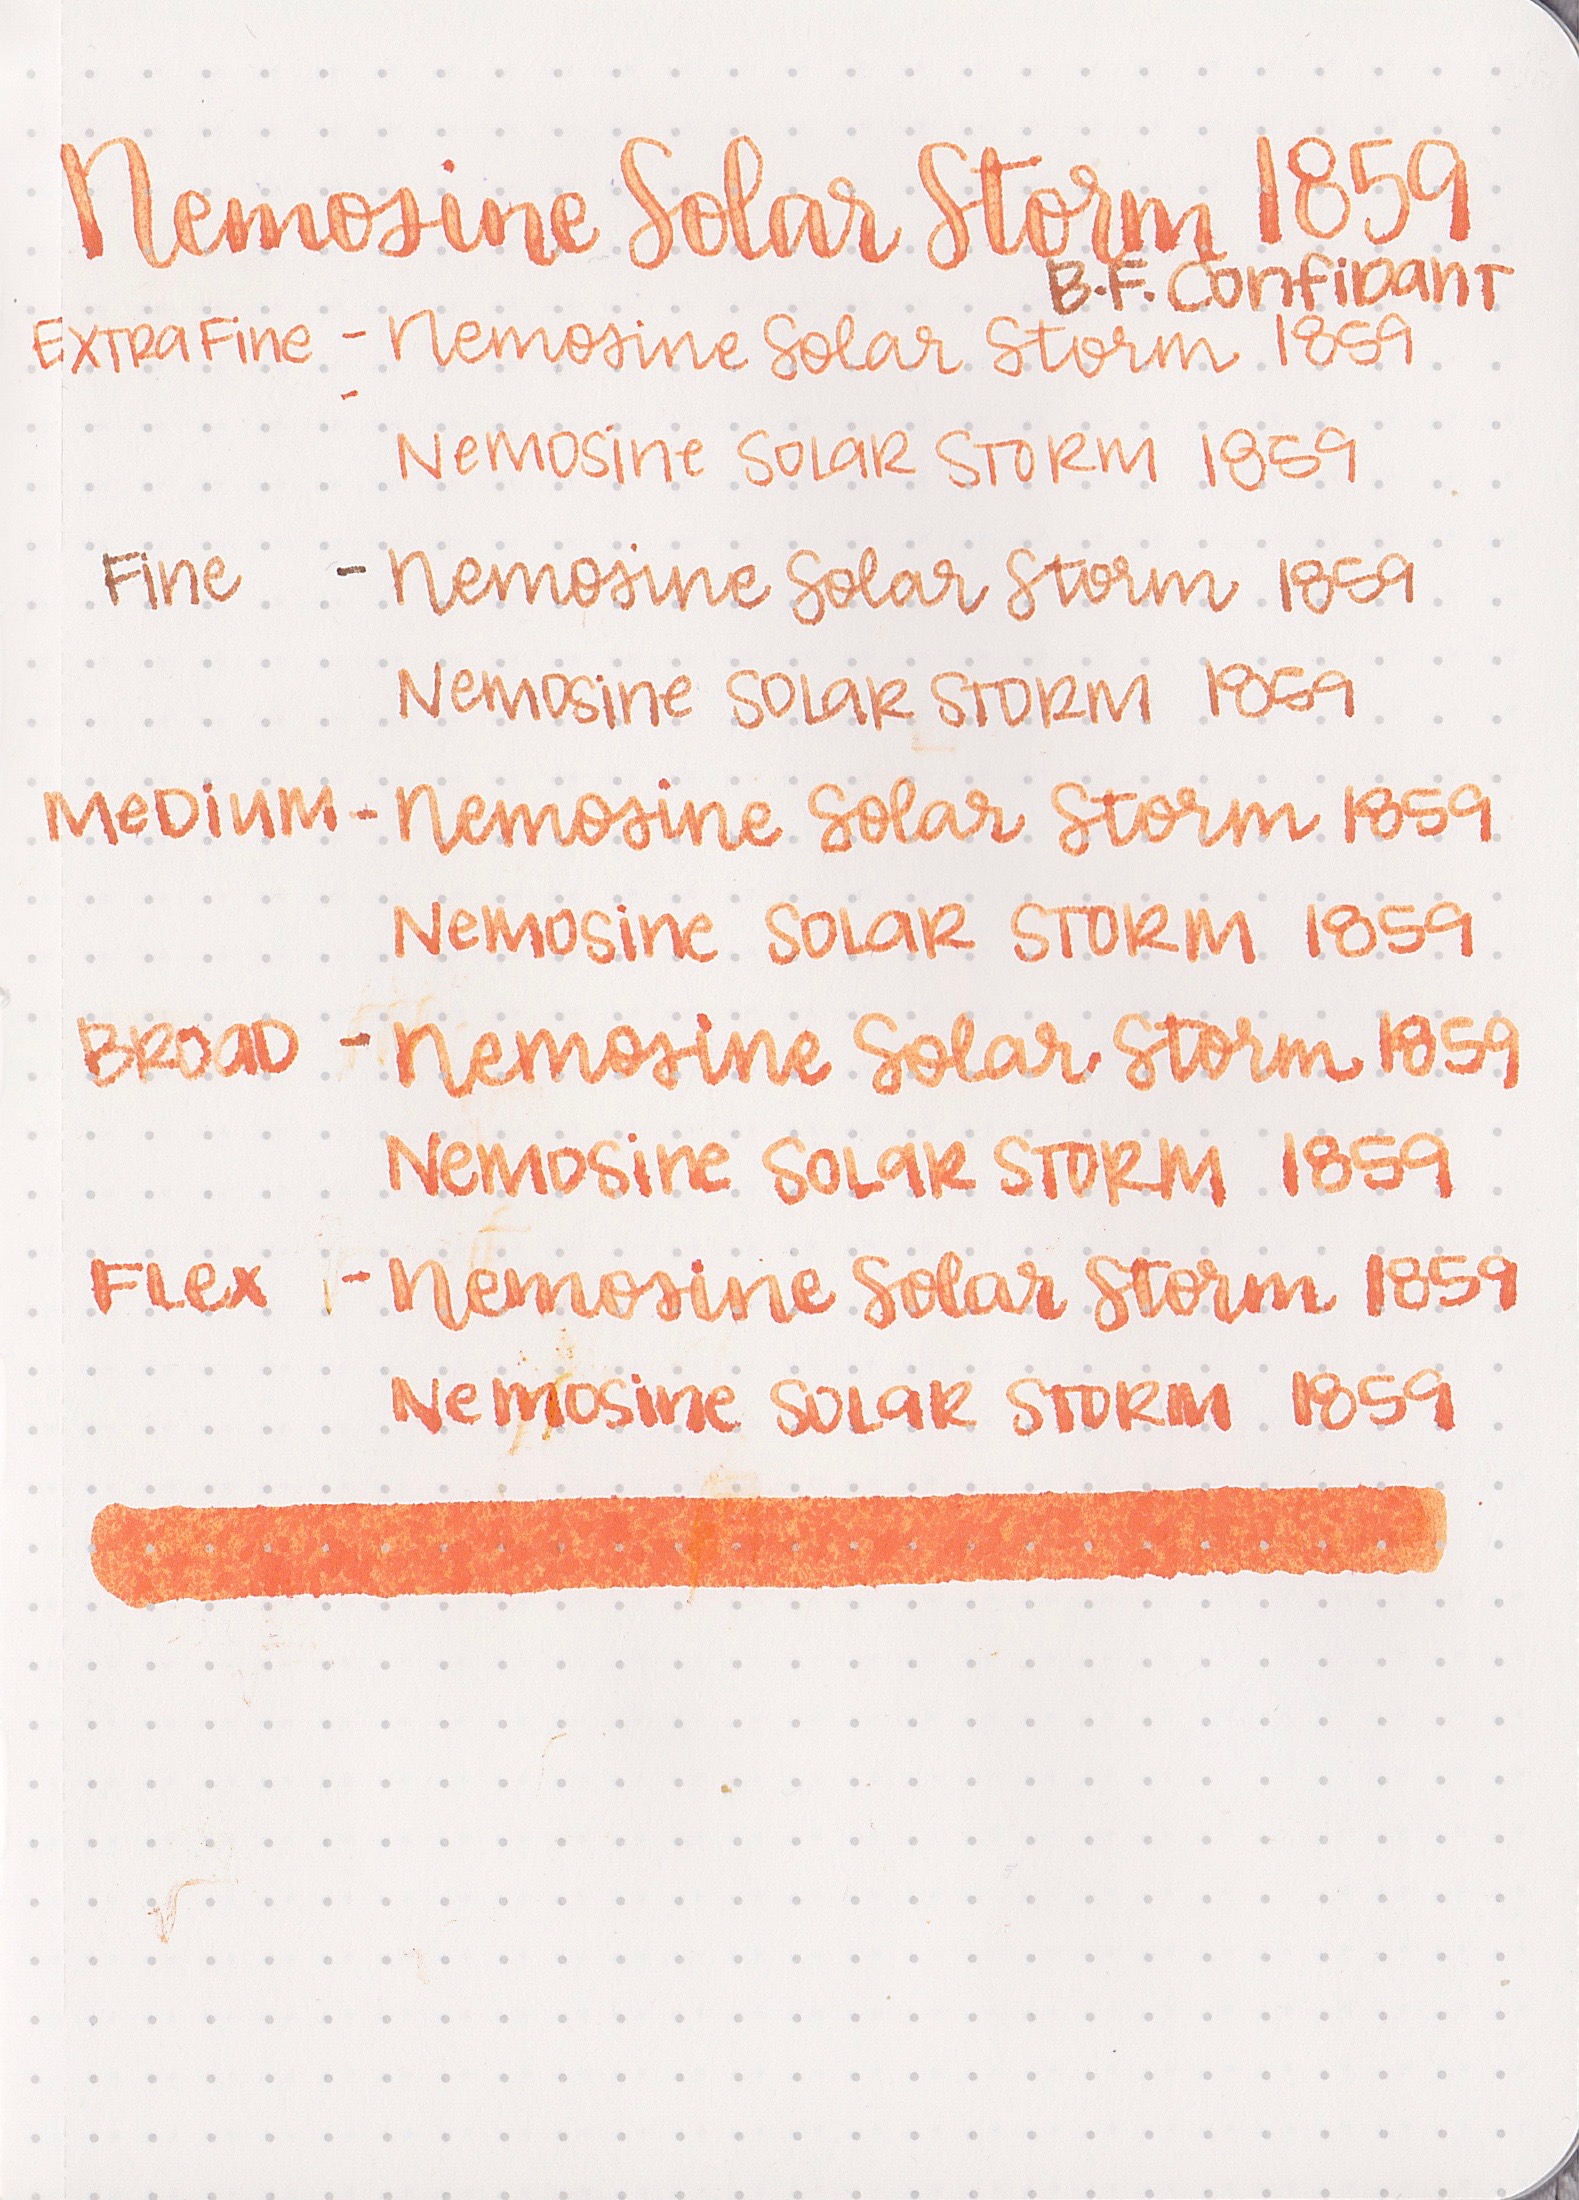 Nemosine Solar Storm 1859
B.F. Confidant
Extra Fine - Nemosine Solar Storm 1859
Nemosine Solar Storm 1859
Fine - Nemosine Solar Storm 1859
Nemosine Solar Storm 1859
Medium - Nemosine Solar Storm 1859
Nemosine Solar Storm 1859
Broad - Nemosine Solar Storm 1859
Nemosine Solar Storm 1859
Flex - Nemosine Solar Storm 1859
Nemosine Solar Storm 1859